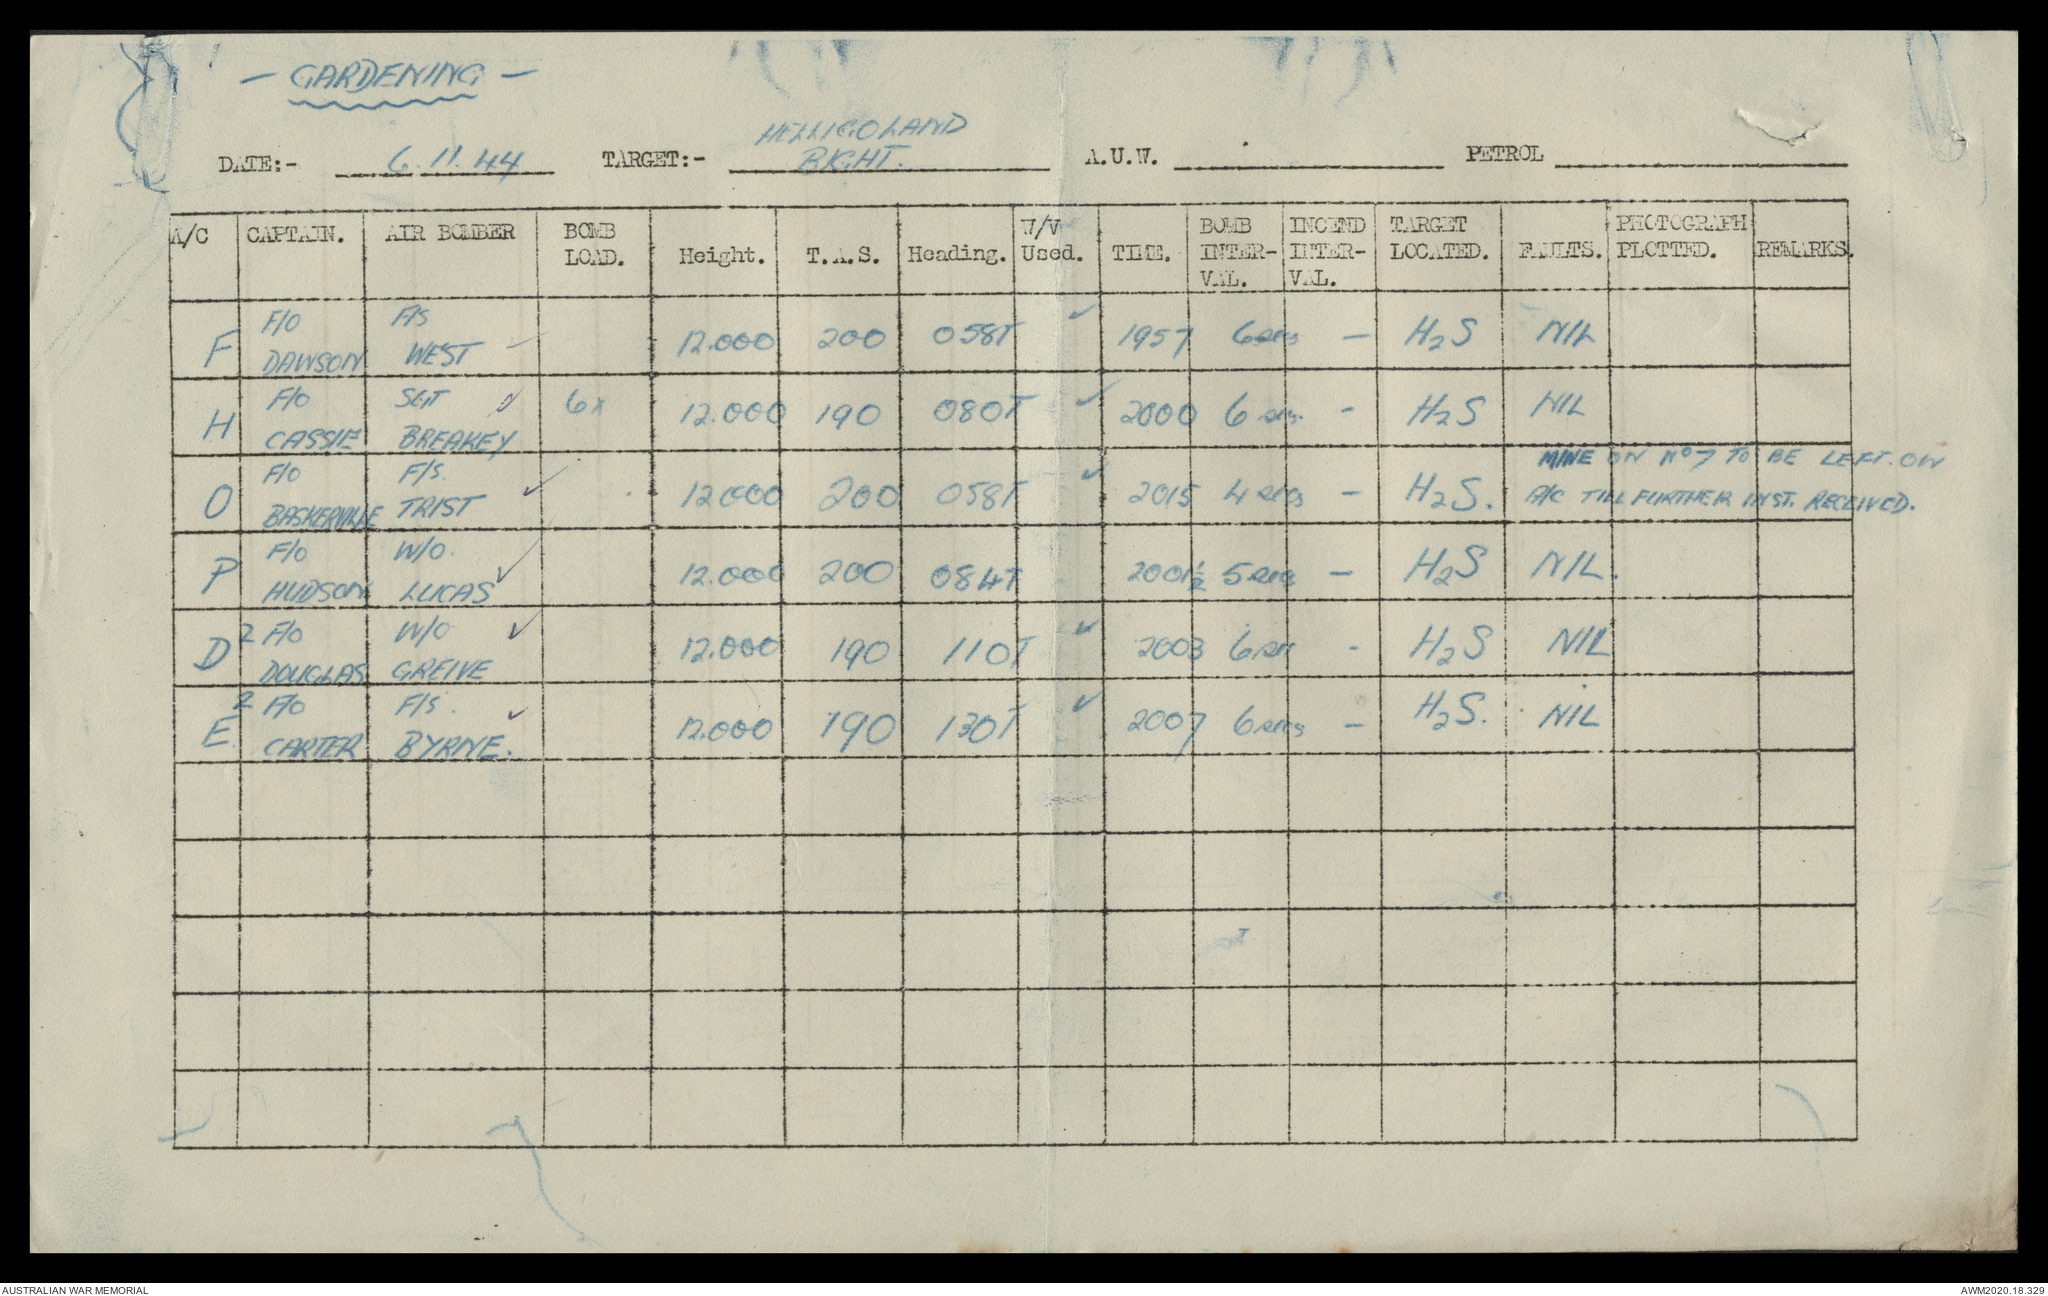 — GARDENING —
HELLIGOLAND
DATE:- 6.11.44 TARGET:- BIGHT. A.U.W. PETROL
A/C CAPTAIN. AIR BOMBER BOMB LOAD. Height. T.A.S. Heading. W/V Used. TIME. BOMB INTER-VAL. INCEND INTER-VAL. TARGET LOCATED. FAULTS. PHOTOGRAPH PLOTTED. REMARKS.
F F/O DAWSON F/S WEST 12.000 200 058T ✓ 1957 6secs — H2S NIL
H F/O CASSIE SGT BREAKEY ✓ 6x 12.000 190 080T ✓ 2000 6 secs. - H2S NIL
O F/O BASKERVILLE F/S. TRIST ✓ 12000 200 058T ✓ 2015 4 secs — H2S. MINE ON No 7 TO BE LEFT. ON
A/C TILL FURTHER INST. RECEIVED.
P F/O HUDSON W/O. LUCAS ✓ 12.000 200 084T 2001½ 5secs — H2S NIL.
D2 F/O DOUGLAS W/O GREIVE ✓ 12.000 190 110T ✓ 2003 6sec - H2S NIL
E2 F/O CARTER F/S. BYRNE. ✓ 12.000 190 130T ✓ 2007 6secs — H2S. NIL
AUSTRALIAN WAR MEMORIAL AWM2020.18.329